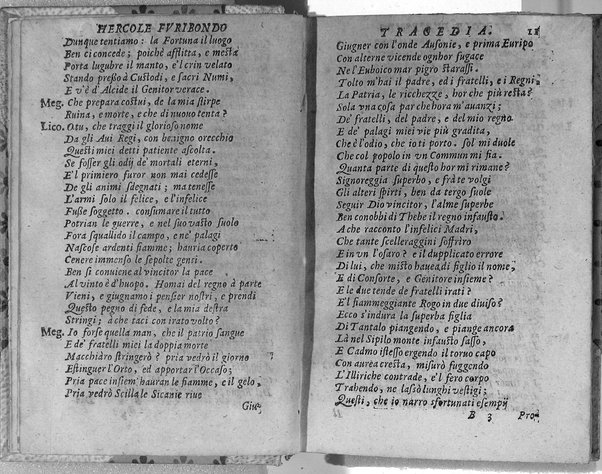 HERCOLE FVRIBONDO
Dunque tentiamo: la Fortuna il luogo
Ben ci concede; poiche afflitta, e mesta
Porta lugubre il manto, e'l crin velato
Stando presso à Custodi, e sacri Numi,
E v'è d'Alcide il Genitor verace.
Meg. Che prepara costui, de la mia stirpe
Ruina, e morte, e che di nuouo tenta?
Lico. O tu, che traggi il glorioso nome
Da gli Aui Regi, con benigno orecchio
Questi miei detti patiente ascolta.
Se fosser gli odij de' mortali eterni,
E'l primiero furor non mai cedesse
De gli animi sdegnati; ma tenesse
L'armi solo il felice, e l'infelice
Fusse soggetto. consumare il tutto
Potrian le guerre, e nel suo vasto suolo
Fora squallido il campo, e ne' palagi
Nascose ardenti fiamme; hauria coperto
Cenere immenso le sepolte genti.
Ben si conuiene al vincitor la pace
Al vinto è d'huopo. Homai del regno à parte
Vieni, e giugnamo i pensier nostri, e prendi
Questo pegno di fede, e la mia destra
Stringi; à che taci con irato volto?
Meg. Io forse quella man, che il patrio sangue
E de' fratelli miei la doppia morte
Macchiàro stringerò? pria vedrò il giorno
Estinguer l'Orto, ed apportar l'Occaso;
Pria pace insiem' hauran le fiamme, e il gelo,
Pria vedrò Scilla le Sicanie riue
Giu-
TRAGEDIA. 11
Giugner con l'onde Ausonie, e prima Euripo
Con alterne vicende ogn'hor fugace
Ne l'Euboico mar pigro starassi.
Tolto m'hai il padre, ed i fratelli, e i Regni,
La Patria, le ricchezze, hor che più resta?
Sola vna cosa par che hora m'auanzi;
De' fratelli, del padre, e del mio regno
E de' palagi miei vie più gradita,
Che è l'odio, che io ti porto. sol mi duole
Che col popolo in vn Commun mi sia.
Quanta parte di questo hor mi rimane?
Signoreggia superbo, e frà te volgi
Gli alteri spirti, ben da tergo suole
Seguir Dio vincitor, l'alme superbe
Ben conobbi di Thebe il regno infausto.
A che racconto l'infelici Madri,
Che tante scelleraggini soffriro
E in vn l'osaro? e il dupplicato errore
Di lui, che misto hauea, di figlio il nome,
E di Consorte, e Genitore insieme?
E le due tende de fratelli irati?
E'l fiammeggiante Rogo in due diuiso?
Ecco s'indura la superba figlia
Di Tantalo piangendo, e piange ancora
Là nel Sipilo monte infausto sasso,
E Cadmo istesso ergendo il toruo capo
Con aurea cresta, misurò fuggendo
L'Illiriche contrade, e'l fero corpo
Trahendo, ne lasciò lunghi vestigi;
Questi, che io narro sfortunati esempij
B 3 Pro-